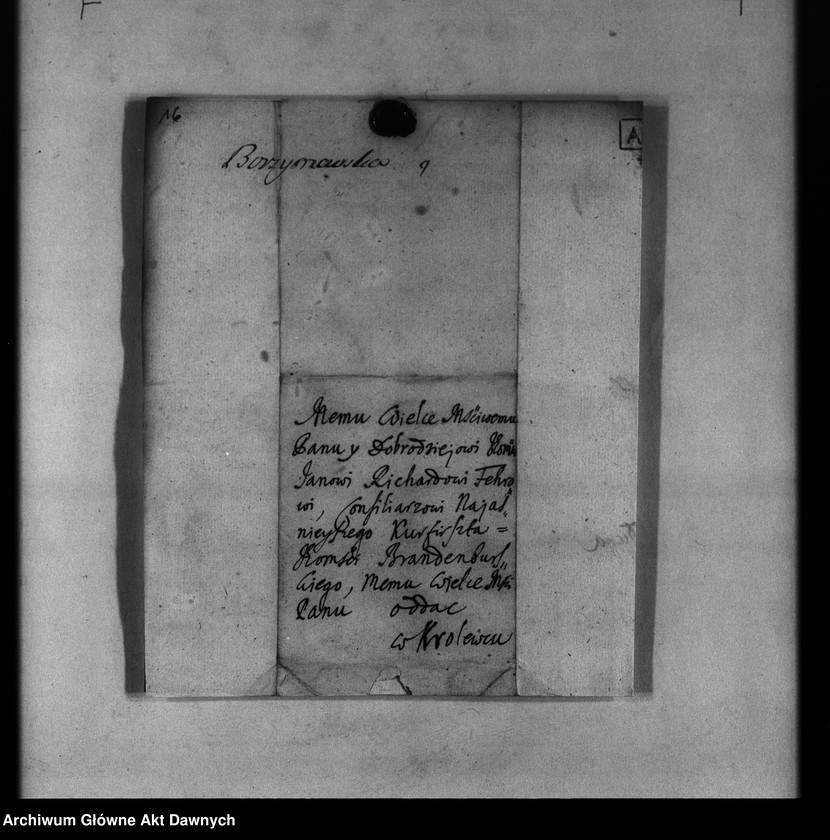 16
A
Borzymowska 9
Memu Wielce Mściwemu
Panu y Dobrodziejowi
Janowi Richardowi Fehro
wi, Consiliarzowi Najaś„
nieyszego Kurfirszta =
Jkomści Brandenburs„
kiego, Memu Wielce Mści
Panu oddac
w Krolewcu
Archiwum Główne Akt Dawnych